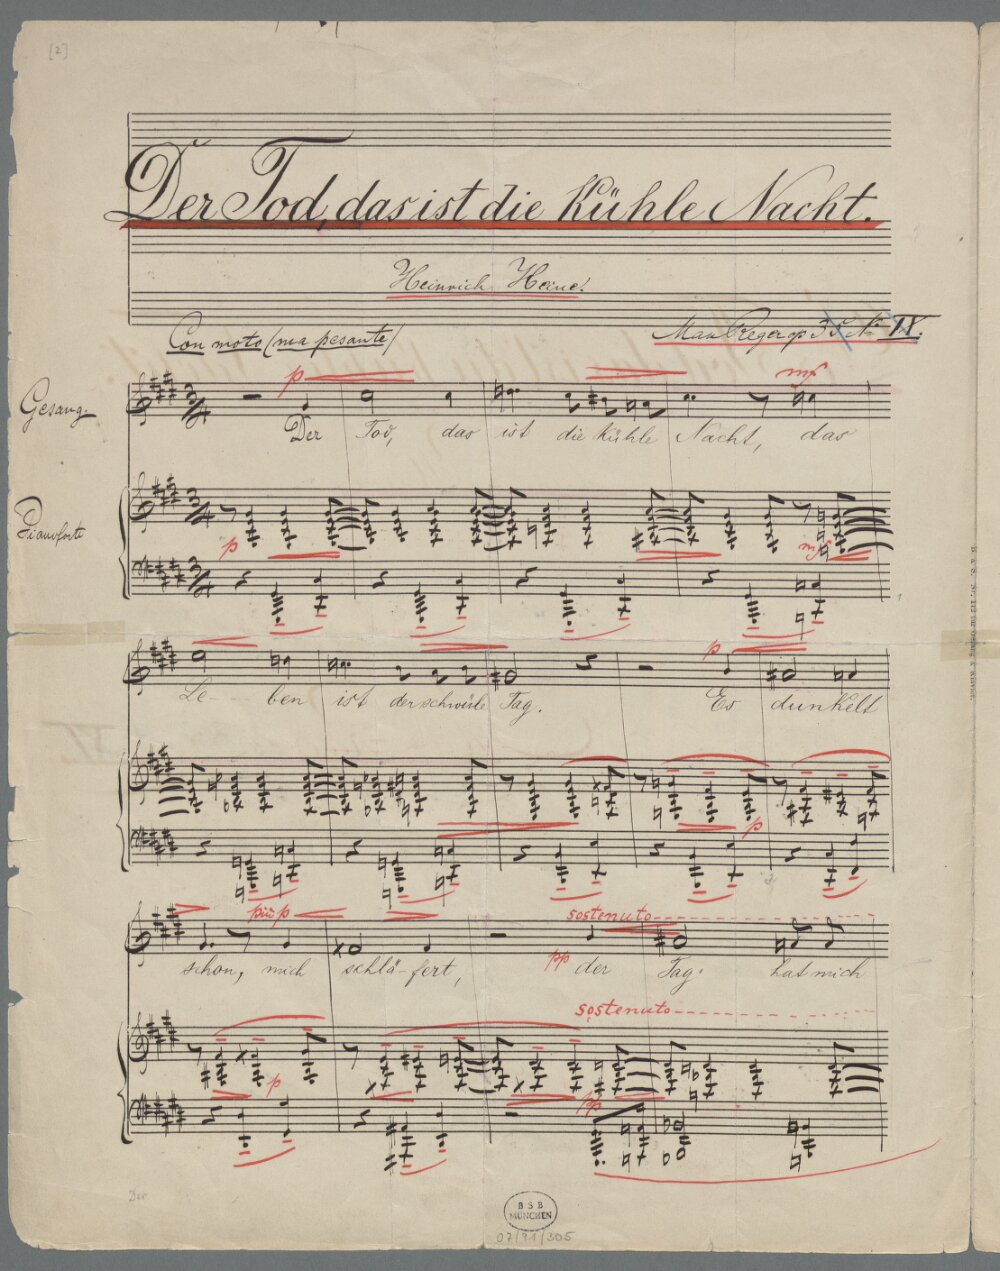 [2]
Der Tod, das ist die kühle Nacht.
Heinrich Heine.
Con moto (ma pesante)
Max Reger op 35 No IV.
p
mf
Gesang.
Der Tod, das ist die kühle Nacht, das
Pianoforte
p
mf
p
Le- ben ist der schwüle Tag. Es dunkelt
p
più p
sostenuto
pp
schon, mich schlä-fert, der Tag hat mich
sostenuto
p
pp
BSB
MÜNCHEN